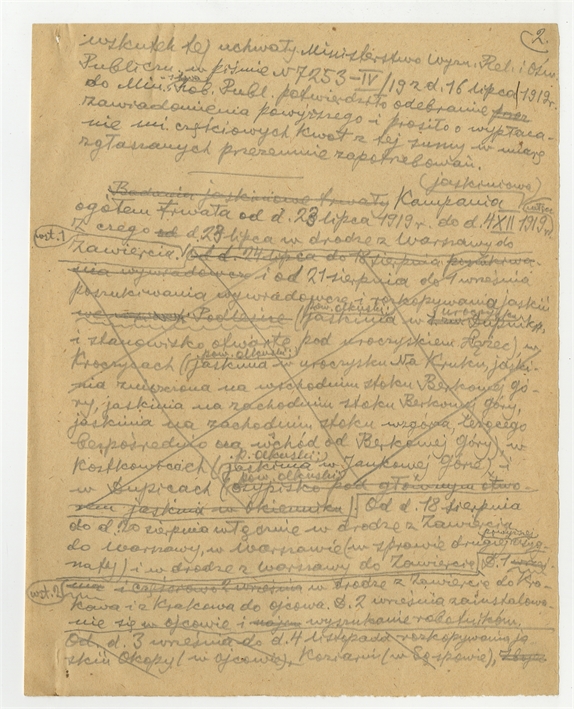 2.
wskutek tej uchwały Ministerstwo Wyzn. Rel. i Ośw.
Publiczn. w piśmie N 7253-IV/19 z d. 16 lipca 1919 r.
do Min. Rob. Publ. potwierdziło odebranie
zawiadomienia powyższego i prosiło o wypłaca-
nie mi częściowych kwot z tej sumy w miarę
zgłaszanych przezemnie zapotrzebowań.
(jaskiniowa)
Badania jaskiniowe trwały Kampania
ogółem trwała od d. 23 lipca 1919 r. do d. 4 XII 1919 r.
wst. 1
Z czego d. 23 lipca w drodze z Warszawy do
Zawiercia. Od d. 24 lipca do 18 sierpnia poszukiwa-
nia wywiadowcze i od 21 sierpnia do 1 września
poszukiwania wywiadowcze i rozkopywania jaskiń
pow. olkuski: uroczysku
we wsiach Podlesice (jaskinia w
i stanowisko otwarte pod uroczyskiem w
pow. olkuski:
Kroczycach (jaskinia w uroczysku Na Kruku, jaski-
nia na wschodnim stoku Berkowej gó-
ry, jaskinia na zachodnim stoku Berkowej góry,
jaskinia na zachodnim stoku wzgórza, leżącego
bezpośrednio na wschód od Berkowej Góry), w
p. olkuski:
Kostkowicach (jaskinia w Jankowej Górze) i
pow. olkuski:
w Łupicach (osypisko pod głównym otwo-
rem jaskini w Okienniku). Od d. 18 sierpnia
do d. 20 sierpnia włącznie w drodze z Zawiercia
do Warszawy, w Warszawie (w sprawie drugiej
naty) i w drodze z Warszawy do Zawiercia. D. 1
wst. 2
w drodze z Zawiercia do Kra-
kowa i z Krakowa do Ojcowa. D. 2 września zainstalowa-
nie się w Ojcowie i wyszukanie robotników.
Od d. 3 września do d. 4 listopada rozkopywania ja-
skiń Okopy (w Ojcowie), Koziarni (w Sąspowie),